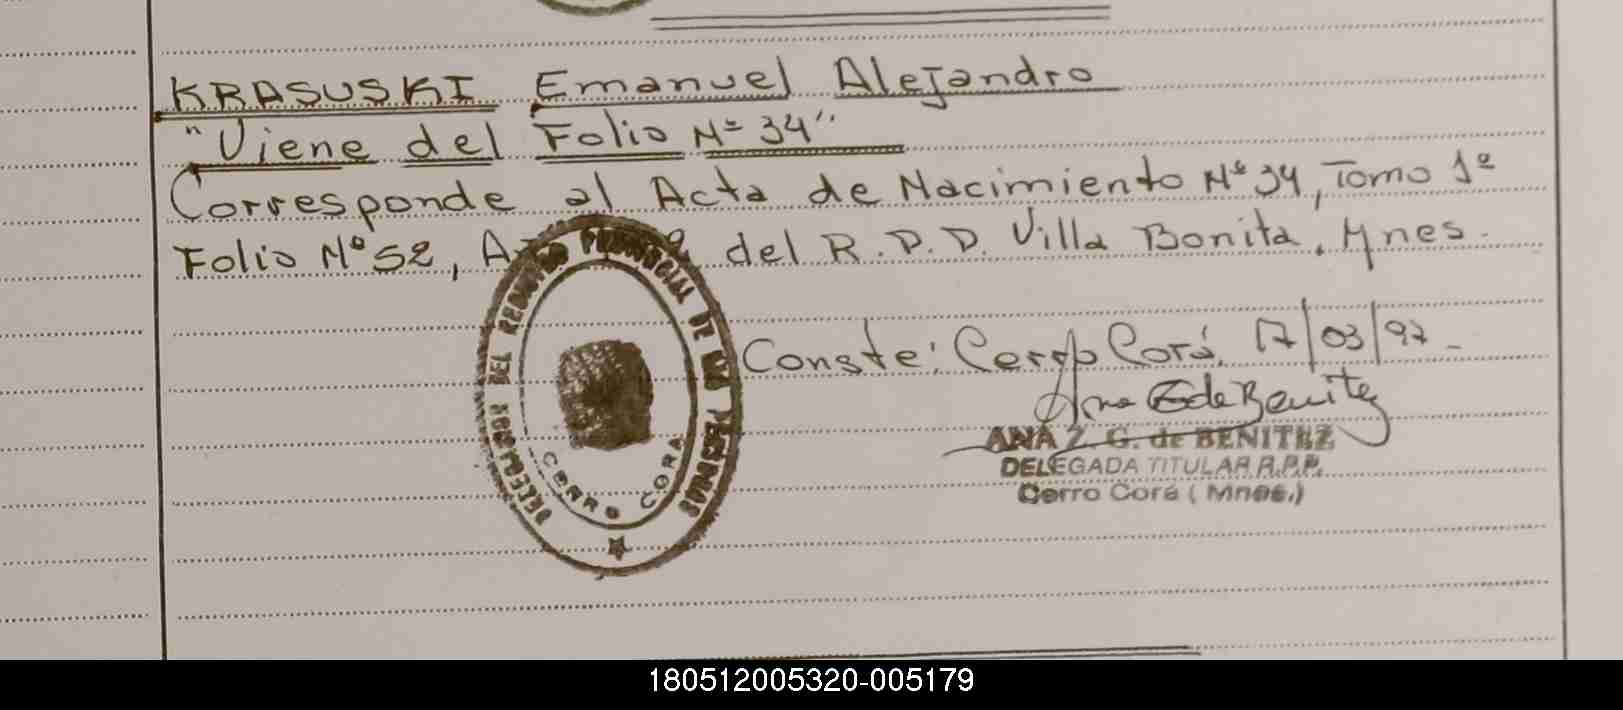 KRASUSKI Emanuel Alejandro
"Viene del Folio Nº 34"
Corresponde al Acta de Nacimiento Nº 34, Tomo 1º
Folio Nº 52, del R.P.P. Villa Bonita, Mnes.
DELEGACION DEL REGISTRO PROVINCIAL DE LAS PERSONAS
CERRO CORA
Conste: Cerro Corá, 17/03/97-
Ana G de Benitez
ANA Z. G. de BENITEZ
DELEGADA TITULAR R.P.P.
Cerro Corá (Mnes.)
180512005320-005179